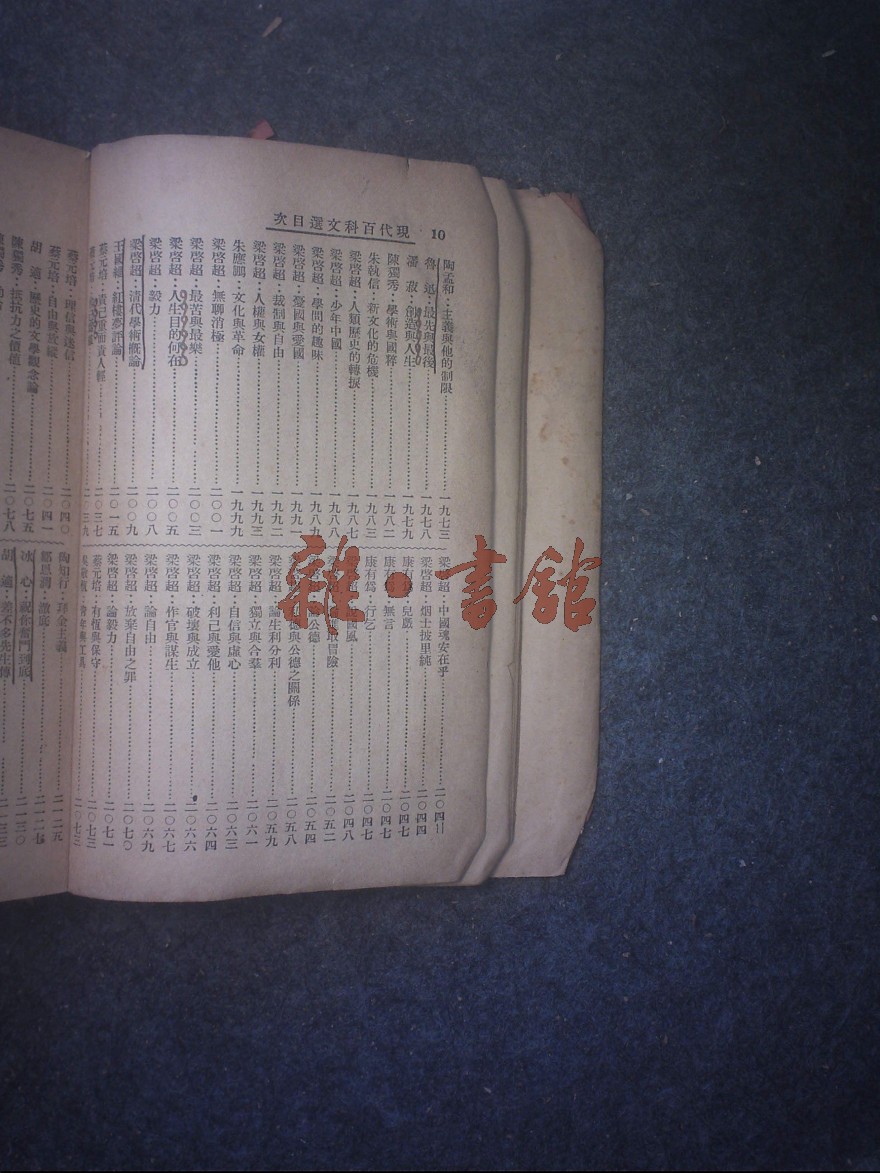 現代百科文選目次
10
陶孟和·主義與他的制限……一九七三
魯 迅·最先與最後……一九七八
潘 菽·創造與人生……一九七九
陳獨秀·學術與國粹……一九八二
朱執信·新文化的危機……一九八三
梁啓超·人類歷史的轉捩……一九八七
梁啓超·少年中國……一九八八
梁啓超·學問的趣味……一九八九
梁啓超·憂國與愛國……一九九一
梁啓超·裁制與自由……一九九二
梁啓超·人權與女權……一九九三
朱應鵬·文化與革命……一九九九
梁啓超·無聊消極……二〇〇一
梁啓超·最苦與最樂……二〇〇三
梁啓超·人生目的何在……二〇〇五
梁啓超·毅力……二〇〇八
梁啓超·清代學術概論……二〇〇九
王國維·紅樓夢評論……二〇一五
蔡元培·責己重而責人輕……二〇三七
二〇三九
蔡元培·理信與迷信……二〇四〇
蔡元培·自由與放縱……二〇四一
胡 適·歷史的文學觀念論……二〇七五
陳獨秀·抵抗力之價值……二〇七八
梁啓超·中國魂安在乎……二〇四一
梁啓超·烟士披里純……二〇四四
康有爲·兒戲……二〇四七
康有爲·無言……二〇四七
康有爲·行乞……二〇四七
國風……二〇四八
取冒險……二〇五二
論公德……二〇五四
德與公德之關係……二〇五八
梁啓超·論生利分利……二〇五九
梁啓超·獨立與合羣……二〇六一
梁啓超·自信與虛心……二〇六三
梁啓超·利己與愛他……二〇六四
梁啓超·破壞與成立……二〇六六
梁啓超·作官與謀生……二〇六七
梁啓超·論自由……二〇六九
梁啓超·放棄自由之罪……二〇七〇
梁啓超·論毅力……二〇七一
蔡元培·有恆與保守……二〇七三
青年與工具……二〇七三
陶知行·拜金主義……二一二五
鄒恩潤·澈底……二一二七
冰 心·祝你奮鬥到底……二一三〇
胡 適·差不多先生傳……二一三三
雜·書館